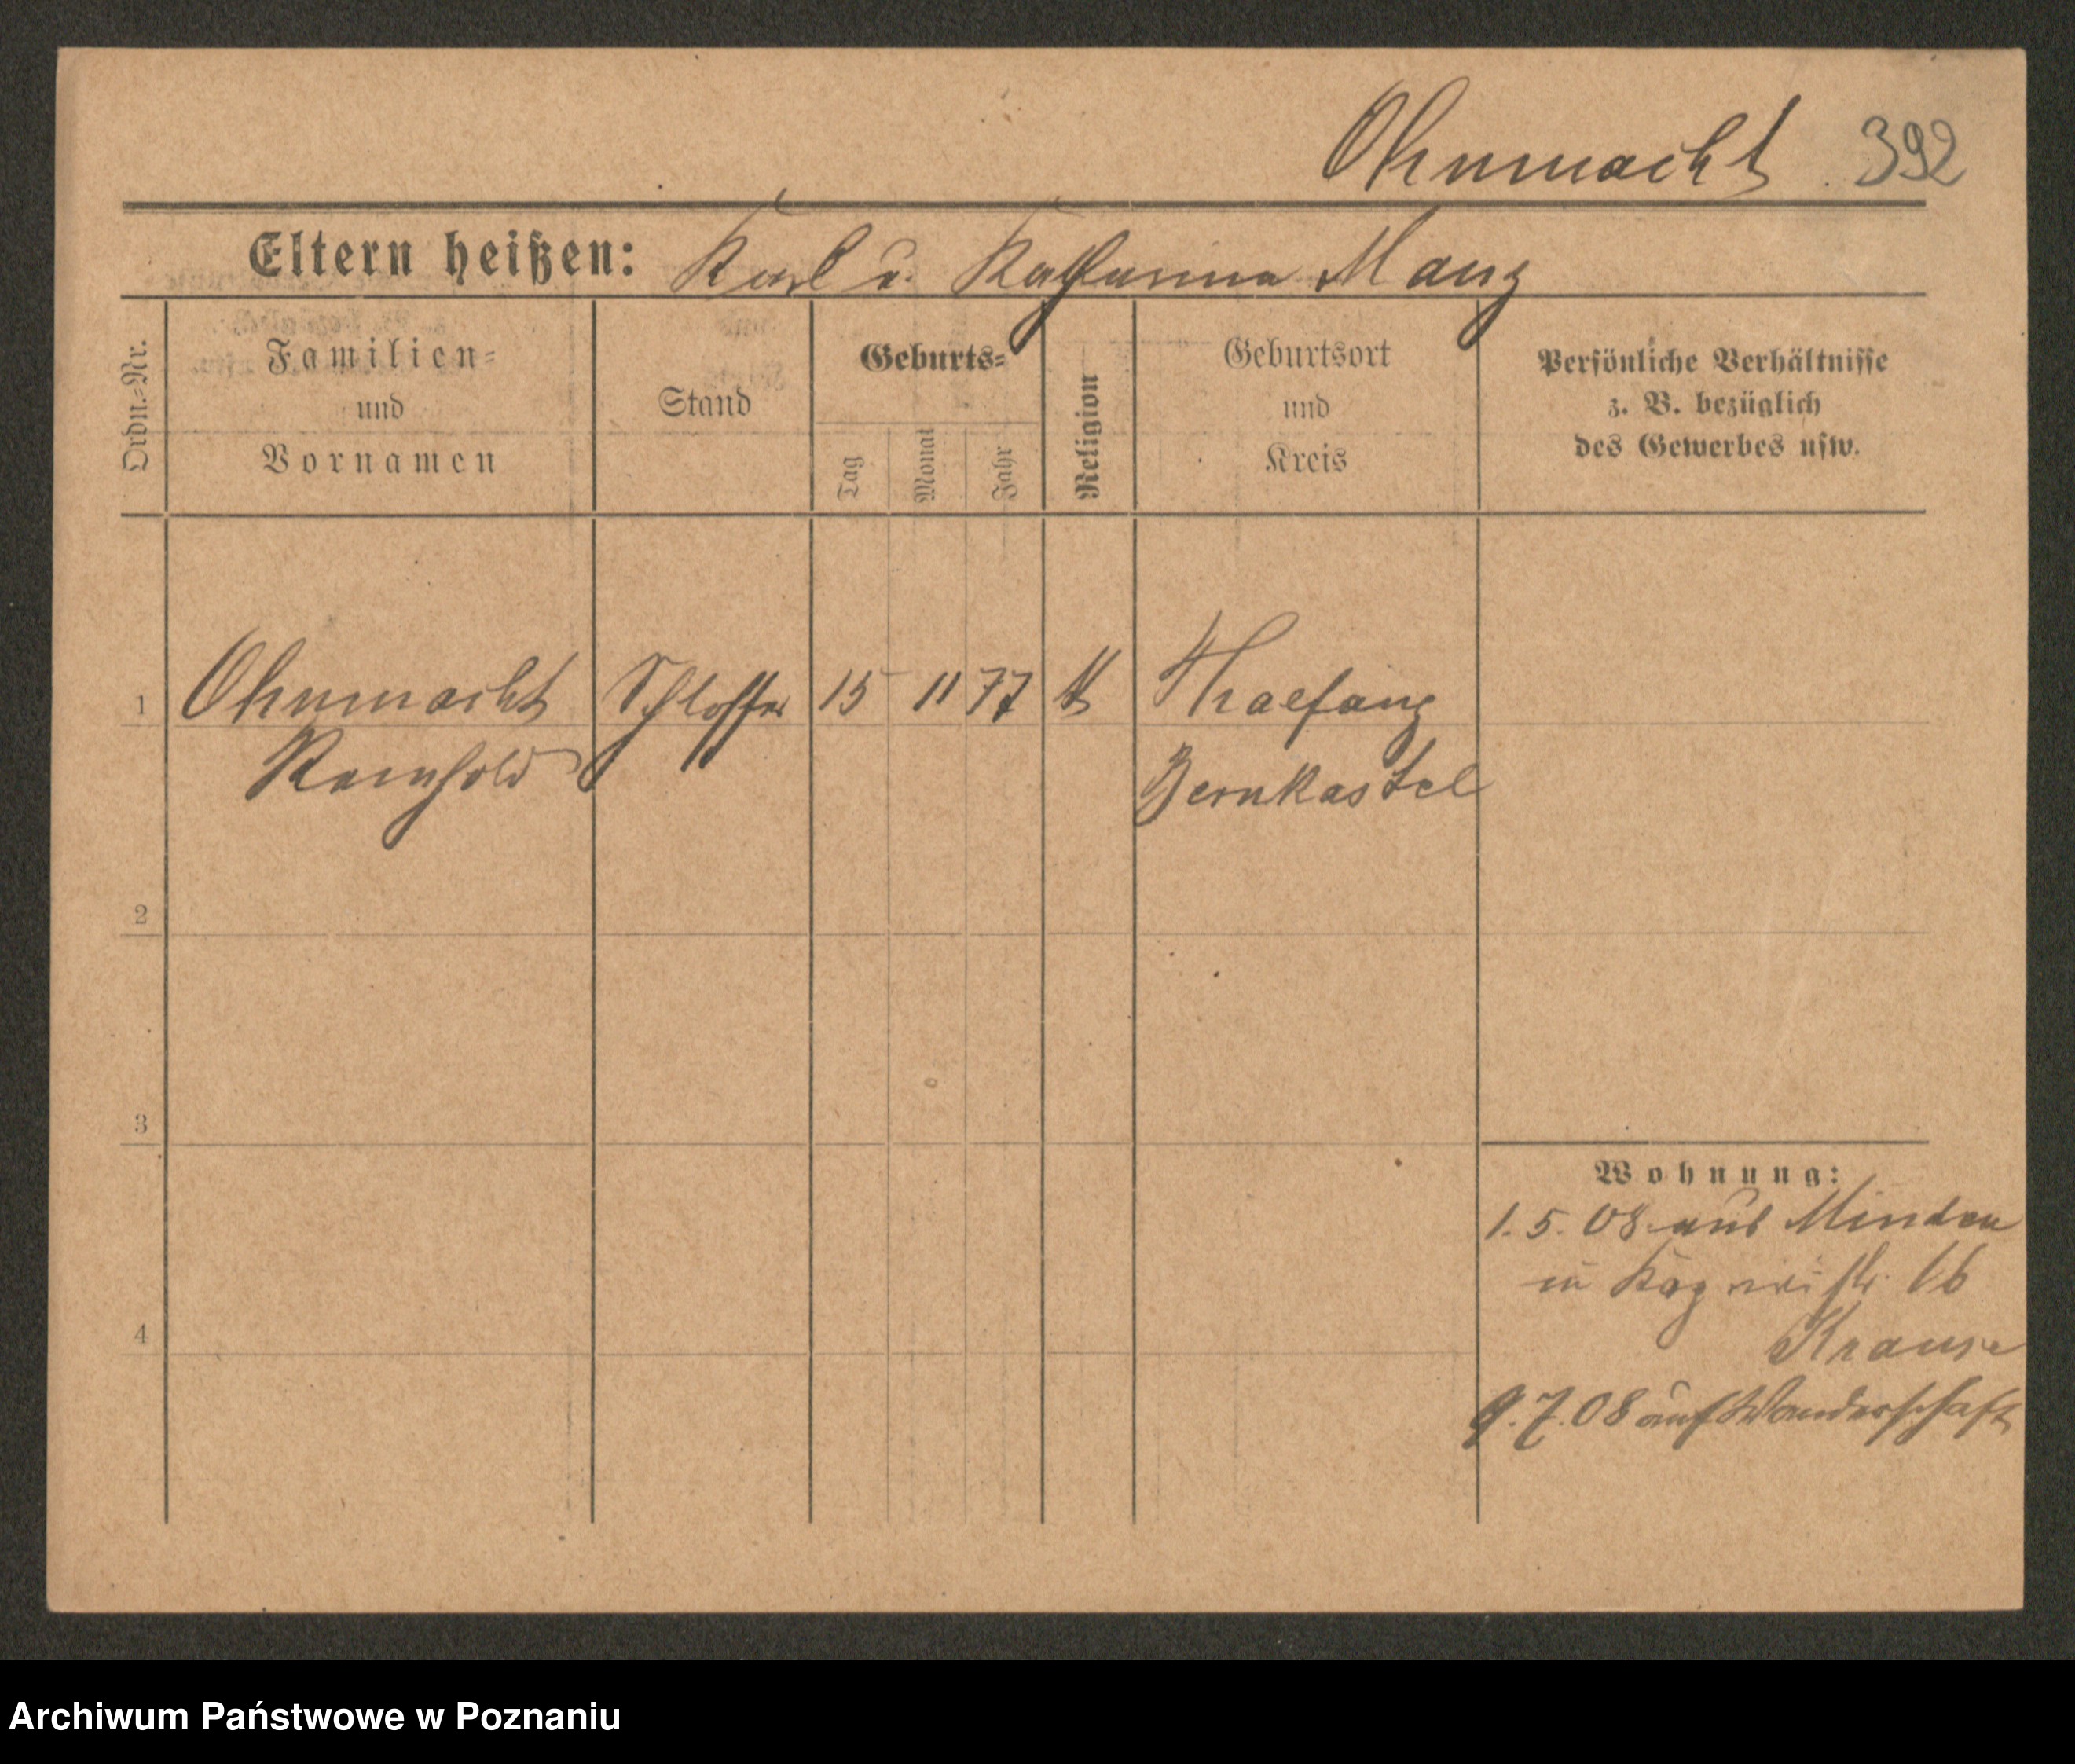 Ohnmacht 392
Eltern heißen: Karl u. Katharina Manz
Ordn.-Nr.
Familien-
und
Vornamen
Stand
Geburts-
Tag
Monat
Jahr
Religion
Geburtsort
und
Kreis
Persönliche Verhältnisse
z. B. bezüglich
des Gewerbes usw.
1 Ohnmacht Schlosser 15 11 77 K
Reinhold Bernkastel
2
3
4
Wohnung:
1.5.08 aus Minden
in 16
Krause
9.7.08 auf Wanderschaft
Archiwum Państwowe w Poznaniu